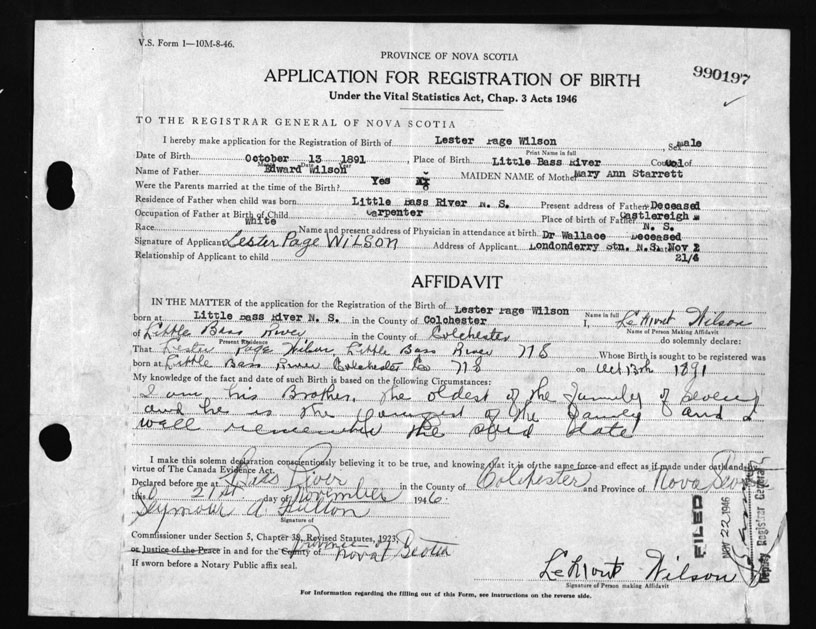 V.S. Form 1—10M-8-46.
PROVINCE OF NOVA SCOTIA
990197
APPLICATION FOR REGISTRATION OF BIRTH
Under the Vital Statistics Act, Chap. 3 Acts 1946
TO THE REGISTRAR GENERAL OF NOVA SCOTIA
I hereby make application for the Registration of Birth of Lester Page Wilson, Sex male
Print Name in full
Date of Birth October 13 1891, Place of Birth Little Bass River Co Col
Month Date Year
Name of Father Edward Wilson MAIDEN NAME of Mother Mary Ann Starrett
Were the Parents married at the time of the Birth? Yes
Residence of Father when child was born Little Bass River N. S. Present address of Father Deceased
Occupation of Father at Birth of Child Carpenter Place of birth of Father Castlereigh
N. S.
Race White Name and present address of Physician in attendance at birth Dr Wallace Deceased
Signature of Applicant Lester Page WILSON Address of Applicant Londonderry Stn. N.S. Nov 2
21/4
Relationship of Applicant to child
AFFIDAVIT
IN THE MATTER of the application for the Registration of the Birth of Lester Page Wilson
Name in full
born at Little Bass River N S. in the County of Colchester I, LeMont Wilson
Name of Person Making Affidavit
of Little Bass River in the County of Colchester do solemnly declare:
Present Residence
That Lester Page Wilson Little Bass River N S Whose Birth is sought to be registered was
born at Little Bass River Colchester Co N S on Oct 13th 1891
My knowledge of the fact and date of such Birth is based on the following Circumstances:
I am his Brother, the oldest of the family of seven
and he is the youngest of the family and I
well remember the said date
I make this solemn declaration conscientiously believing it to be true, and knowing that it is of the same force and effect as if made under oath and by
virtue of The Canada Evidence Act.
Declared before me at Bass River in the County of Colchester and Province of Nova Scotia
this 21st day of November 1946.
Seymour A. Fulton
Signature of
Commissioner under Section 5, Chapter 38, Revised Statutes, 1923,
or Justice of the Peace in and for the County of Province of Nova Scotia
If sworn before a Notary Public affix seal.
FILED
NOV 22 1946
Deputy Registrar General
LeMont Wilson
Signature of Person making Affidavit
For Information regarding the filling out of this Form, see instructions on the reverse side.